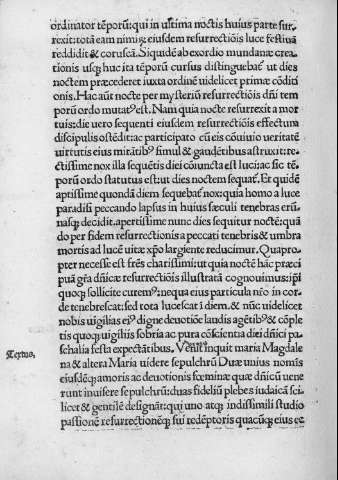 ordinator tẽporũ: qui in ultima noctis huius parte sur-
rexit: totã eam nimiꝝ eiusdem resurrectiõis luce festiuã
reddidit & coruscã. Siquidẽ ab exordio mundanæ crea-
tionis usqꝫ huc ita tẽporũ cursus distinguebat̃ ut dies
noctem præcederet iuxta ordinẽ uidelicet primæ cõditi
onis. Hac aũt nocte per mysteriũ resurrectiõis dñi tem
porũ ordo mutatꝰ est. Nam quia nocte resurrexit a mor
tuis: die uero sequenti eiusdem resurrectiõis effectum
discipulis ostẽdit: ac participato cũ eis cõuiuio ueritatẽ
uirtutis eius mirãtibꝰ simul & gaudẽtibus astruxit: re-
ctissime nox illa sequẽtis diei cõiuncta est luci: ac sic tẽ
porũ ordo statutus est: ut dies noctem sequat̃. Et quidẽ
aptissime quondã diem sequebat̃ nox: quia homo a luce
paradisi peccando lapsus in huius sæculi tenebras erũ-
nasqꝫ decidit. apertissime nunc dies sequitur noctẽ: quã
do per fidem resurrectionis a peccati tenebris & umbra
mortis ad lucẽ uitæ xp̃o largiente reducimur. Quapro-
pter necesse est frẽs charissimi: ut qui noctẽ hãc præci
puã gr̃a dñicæ resurrectiõis illustratã cognouimus: ip̃i
quoqꝫ sollicite curemꝰ: nequa eius particula nr̃o in cor-
de tenebrescat: sed tota lucescat ĩ diem. & nũc uidelicet
nobis uigilias eiꝰ digne deuotiõe laudis agẽtibꝰ & cõple
tis quoqꝫ uigiliis sobria ac pura cõscientia diei dñici pa-
schalia festa expectãtibus. Venit inquit maria Magdale
na & altera Maria uidere sepulchrũ Duæ unius nomĩs
eiusdẽqꝫ amoris ac deuotionis fœminæ quæ dñicũ uene
runt inuisere sepulchrũ: duas fideliũ plebes iudaicã sci-
licet & gentilẽ designãt: qui uno atqꝫ indissimili studio
passionẽ resurrectionẽqꝫ sui redẽptoris quacũqꝫ eius ec
Textus.